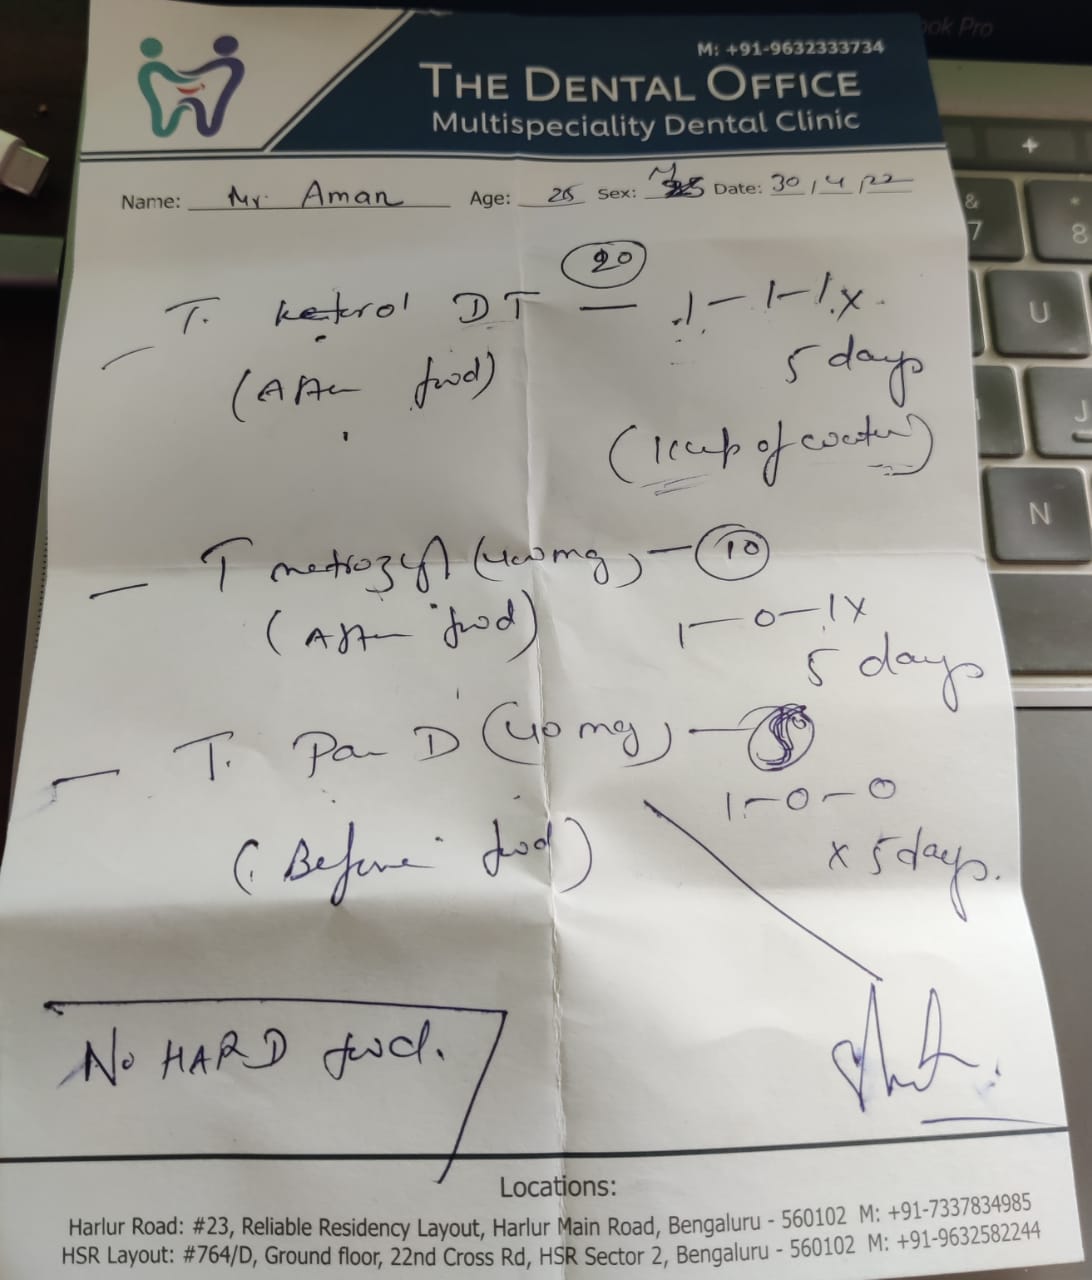 ok Pro
M: +91-9632333734
THE DENTAL OFFICE
Multispeciality Dental Clinic
Name: Mr. Aman Age: 26 Sex: M Date: 30/4/22
20
T. ketorol DT — 1-1-1 x
5 days
(After food)
(1 cup of water)
T metrogyl (400mg) — 10
(After food) 1-0-1 x
5 days
T. Pan D (40 mg) —
1-0-0
(Before food) x 5 days.
No HARD food.
Locations:
Harlur Road: #23, Reliable Residency Layout, Harlur Main Road, Bengaluru - 560102 M: +91-7337834985
HSR Layout: #764/D, Ground floor, 22nd Cross Rd, HSR Sector 2, Bengaluru - 560102 M: +91-9632582244
+
&
7
*
8
U
J
N